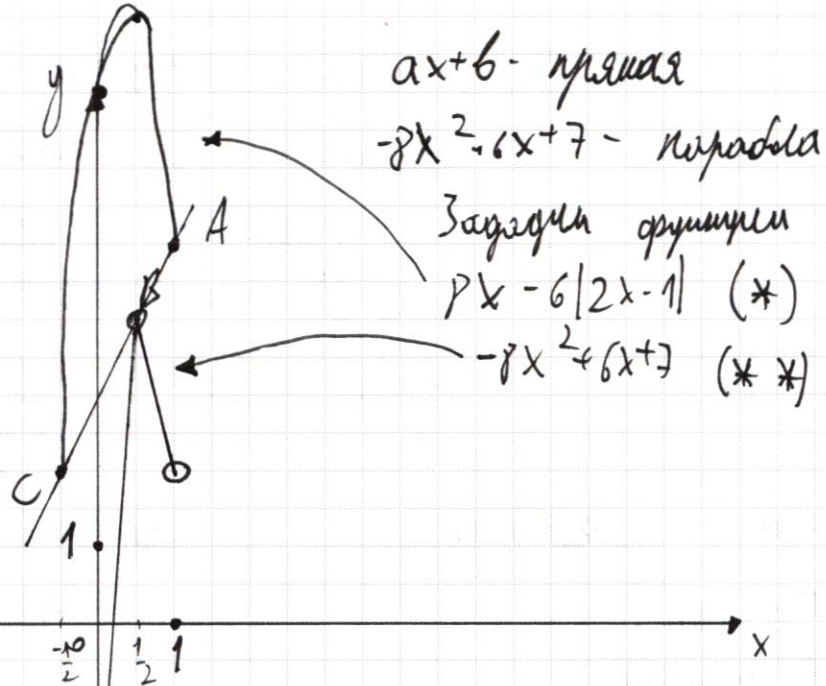 y
ax+b - прямая
-8x²+6x+7 - парабола
Зададим функции
A
8x - 6|2x-1| (*)
B
-8x²+6x+7 (* *)
C
1
1/2
1
x